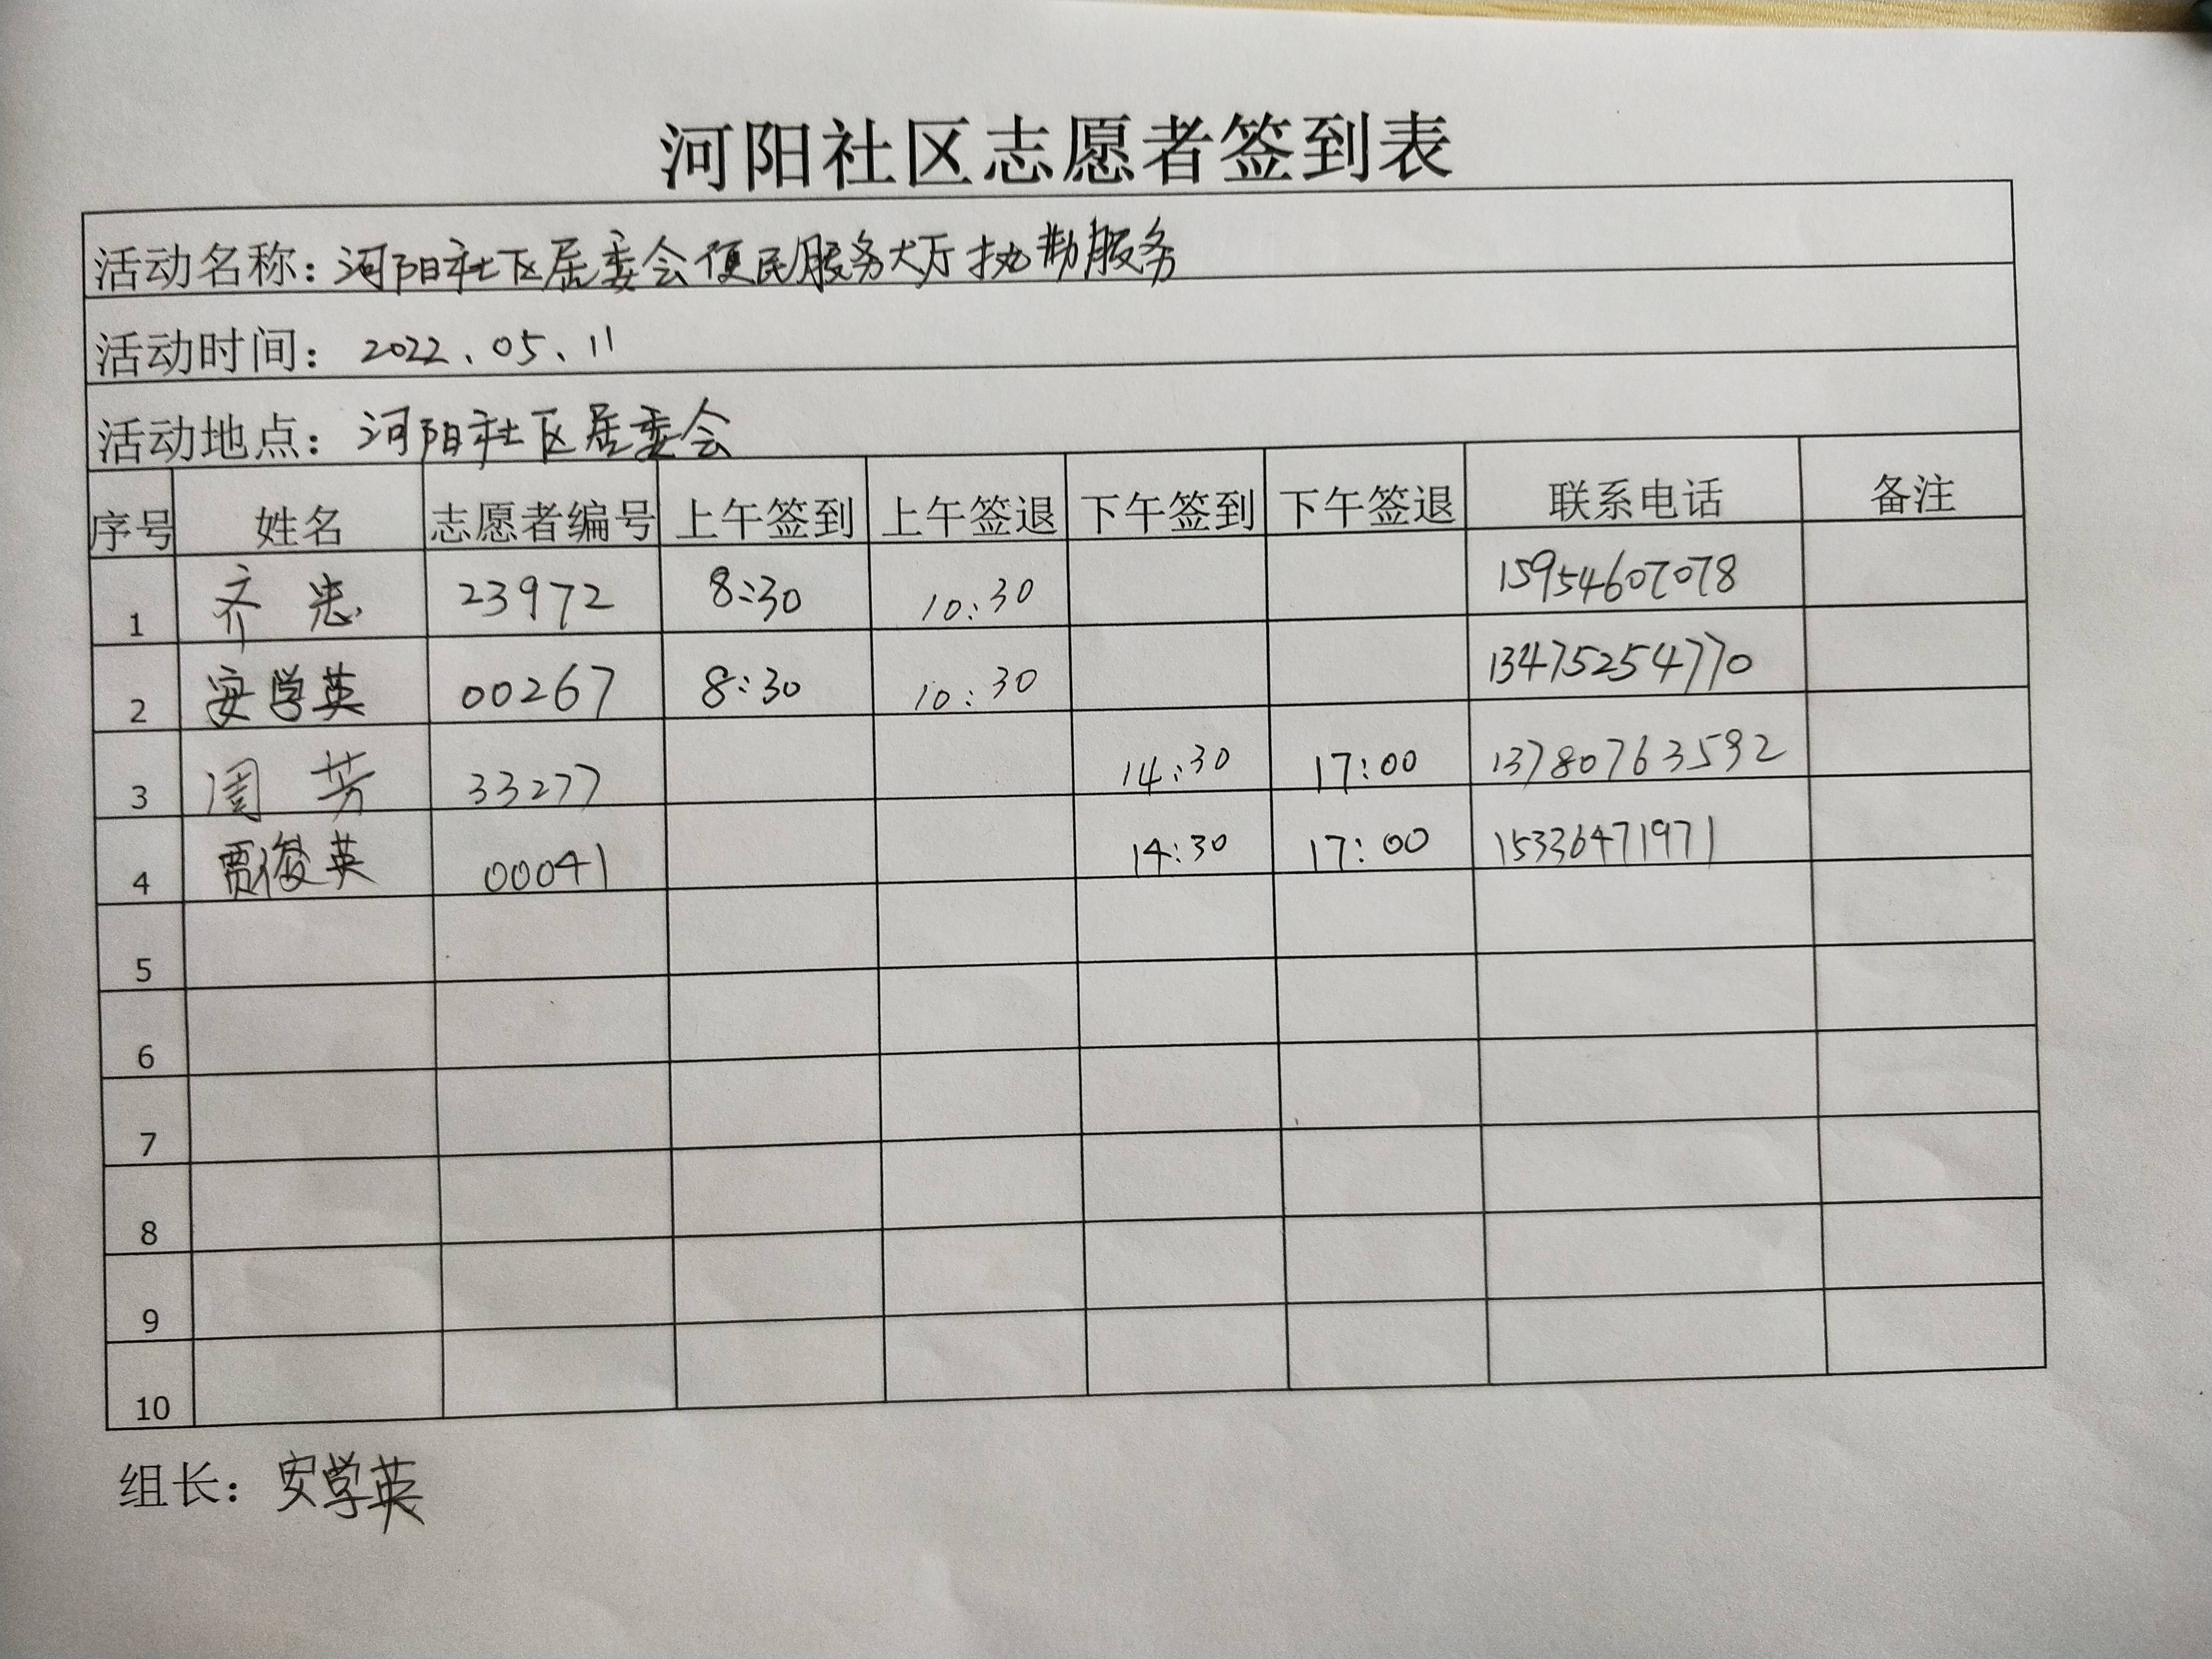 河阳社区志愿者签到表
活动名称：河阳社区居委会便民服务大厅执勤服务
活动时间：2022、05、11
活动地点：河阳社区居委会
序号 姓名 志愿者编号 上午签到 上午签退 下午签到 下午签退 联系电话 备注
1 齐忠 23972 8:30 10:30 15954607078
2 安学英 00267 8:30 10:30 13475254770
3 周芳 33277 14:30 17:00 13780763592
4 贾俊英 00041 14:30 17:00 15336471971
5
6
7
8
9
10
组长：安学英